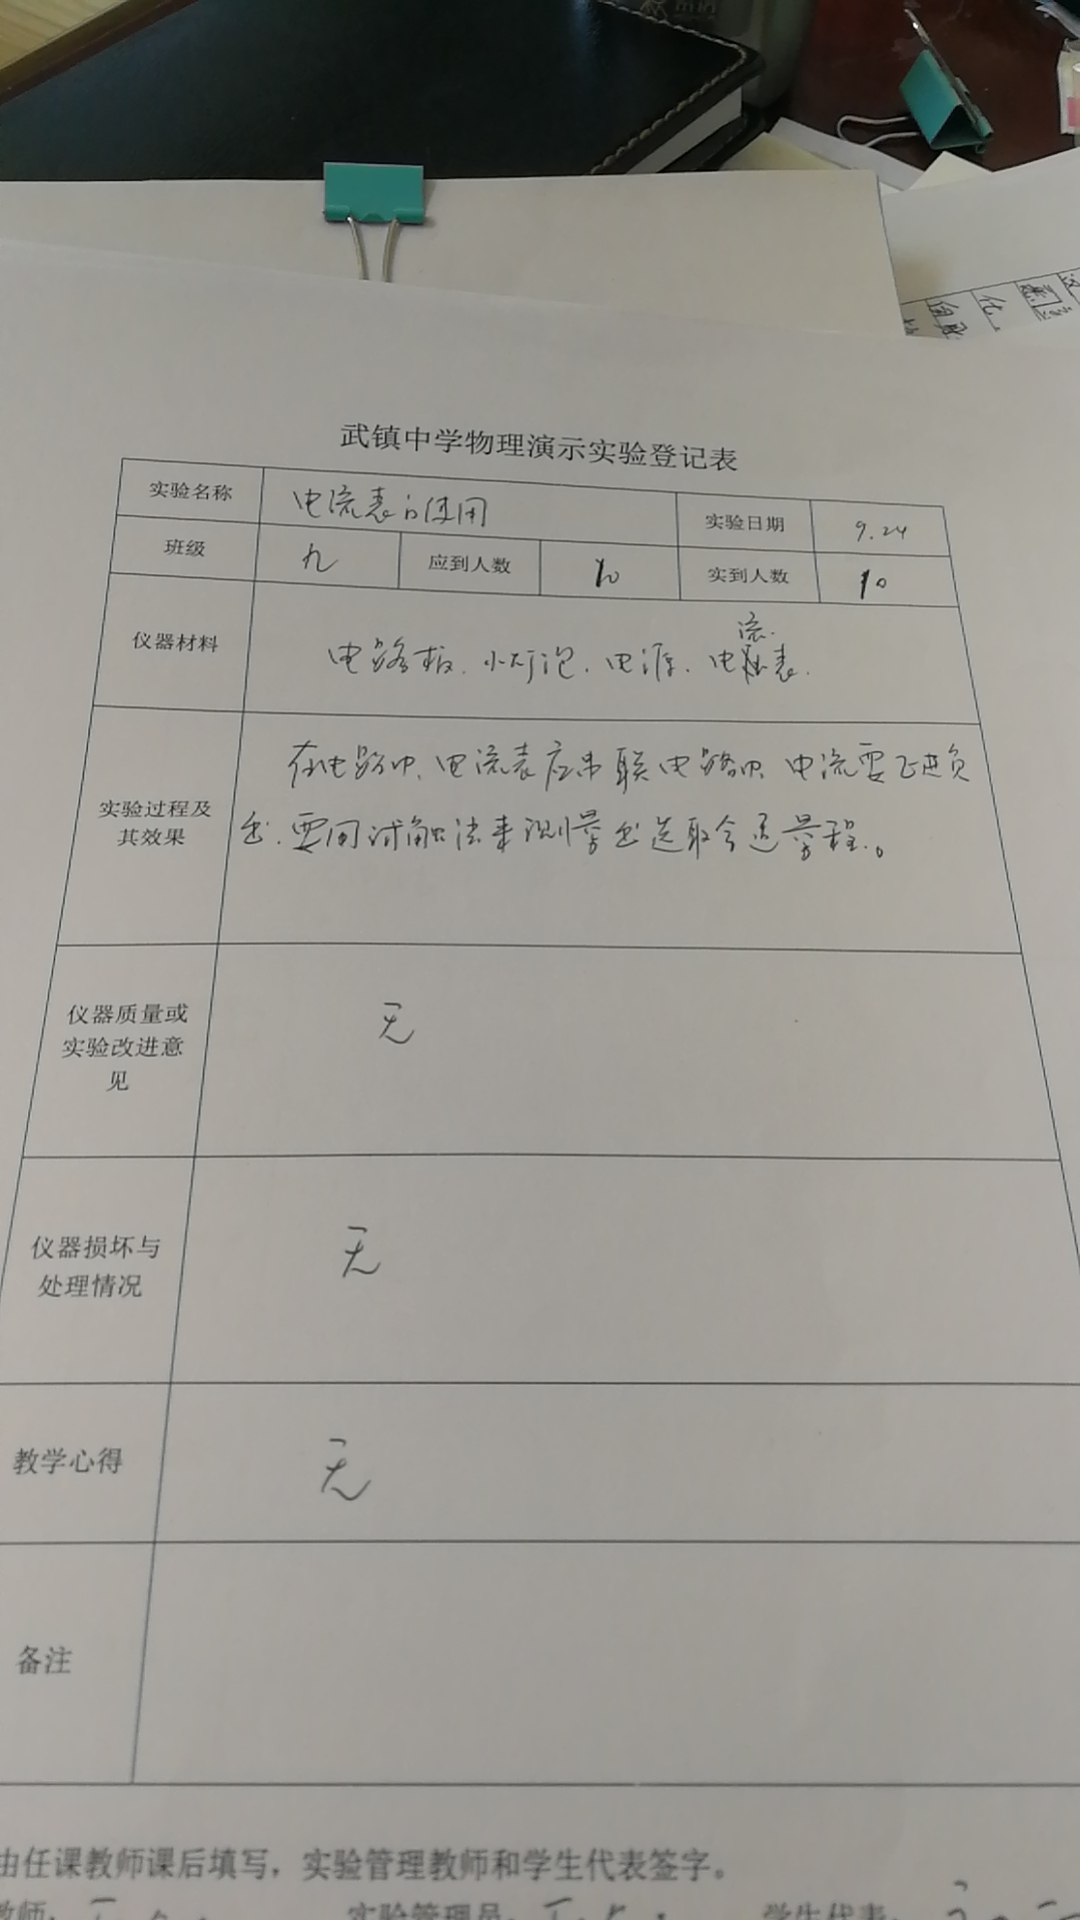 武镇中学物理演示实验登记表
实验名称 电流表的使用 实验日期 9.24
班级 九 应到人数 10 实到人数 10
仪器材料 电路板、小灯泡、电源、电流表.
实验过程及其效果
在电路中、电流表应串联电路中 电流要正进负
出、要用试触法来测量出选取合适量程。
仪器质量或
实验改进意
见
无
仪器损坏与
处理情况
无
教学心得 无
备注
由任课教师课后填写，实验管理教师和学生代表签字。
教师： 实验管理员： 学生代表：